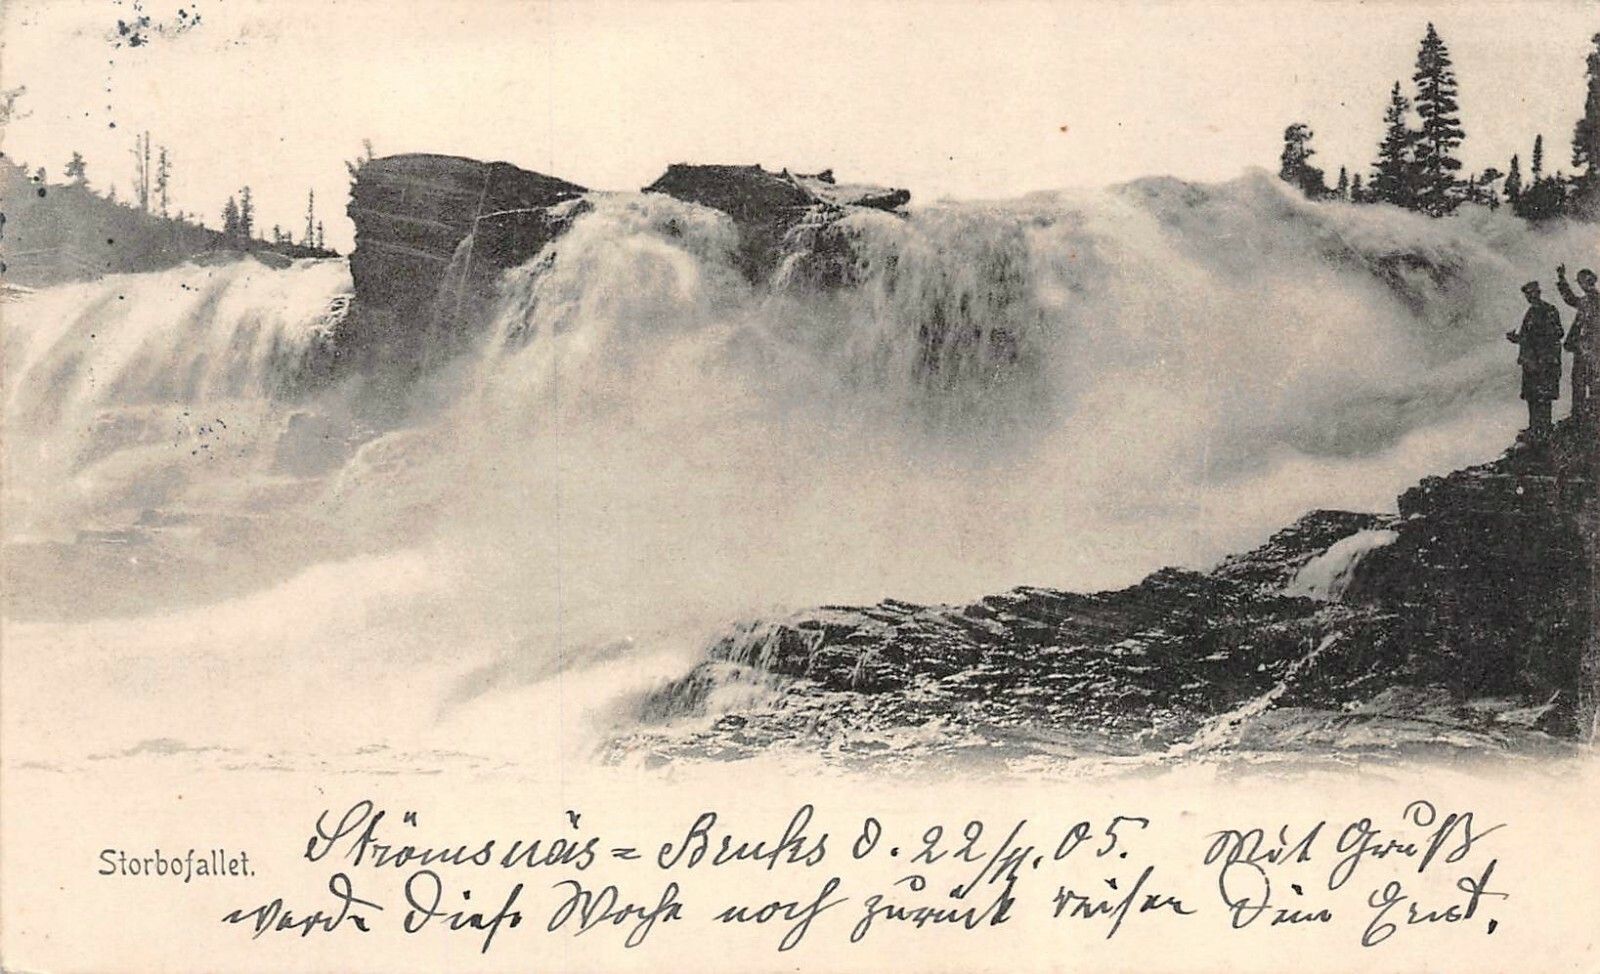 Storbofallet.
Strömsnäs = Bruks d. 22/11. 05. Mit Gruß
werde diese Woche noch zurück reisen Dein Ernst.